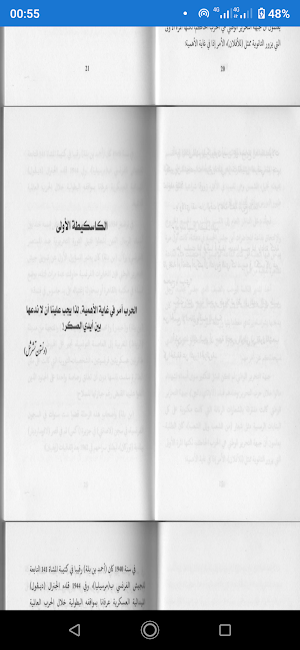 00:55
4G
4G
48%
التي يزور الثانوية ممثل (للأفلان) الأمر إذا في غاية الأهمية
21
20
الكاسكيطة الأولى
الحرب أمر في غاية الأهمية، لذا يجب علينا أن لا ندعها
بين أيدي العسكر!
(ونستون تشرشل)
في سنة 1940 كان (أحمد بن بلة) رقيبا في كتيبة المشاة 141 التابعة
للجيش الفرنسي ب(مرسيليا). وفي 1944 قلده الجنرال (ديغول)
الميدالية العسكرية عرفانا بمواقفه البطولية خلال الحرب العالمية